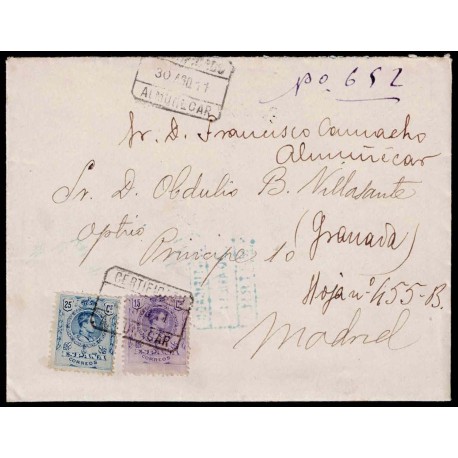 CERTIFICADO
30 AGO 11
ALMUÑECAR
no. 652
Sr. D. Francisco Camacho
Almúñicar
Sr. D. Obdulio B. Villasante
Optico
Principe 10
(Granada)
Hoja nº 455-B.
Madrid
CERTIFICADO
ALMUÑECAR
25
15
ESPAÑA
CORREOS
ESPAÑA
CORREOS